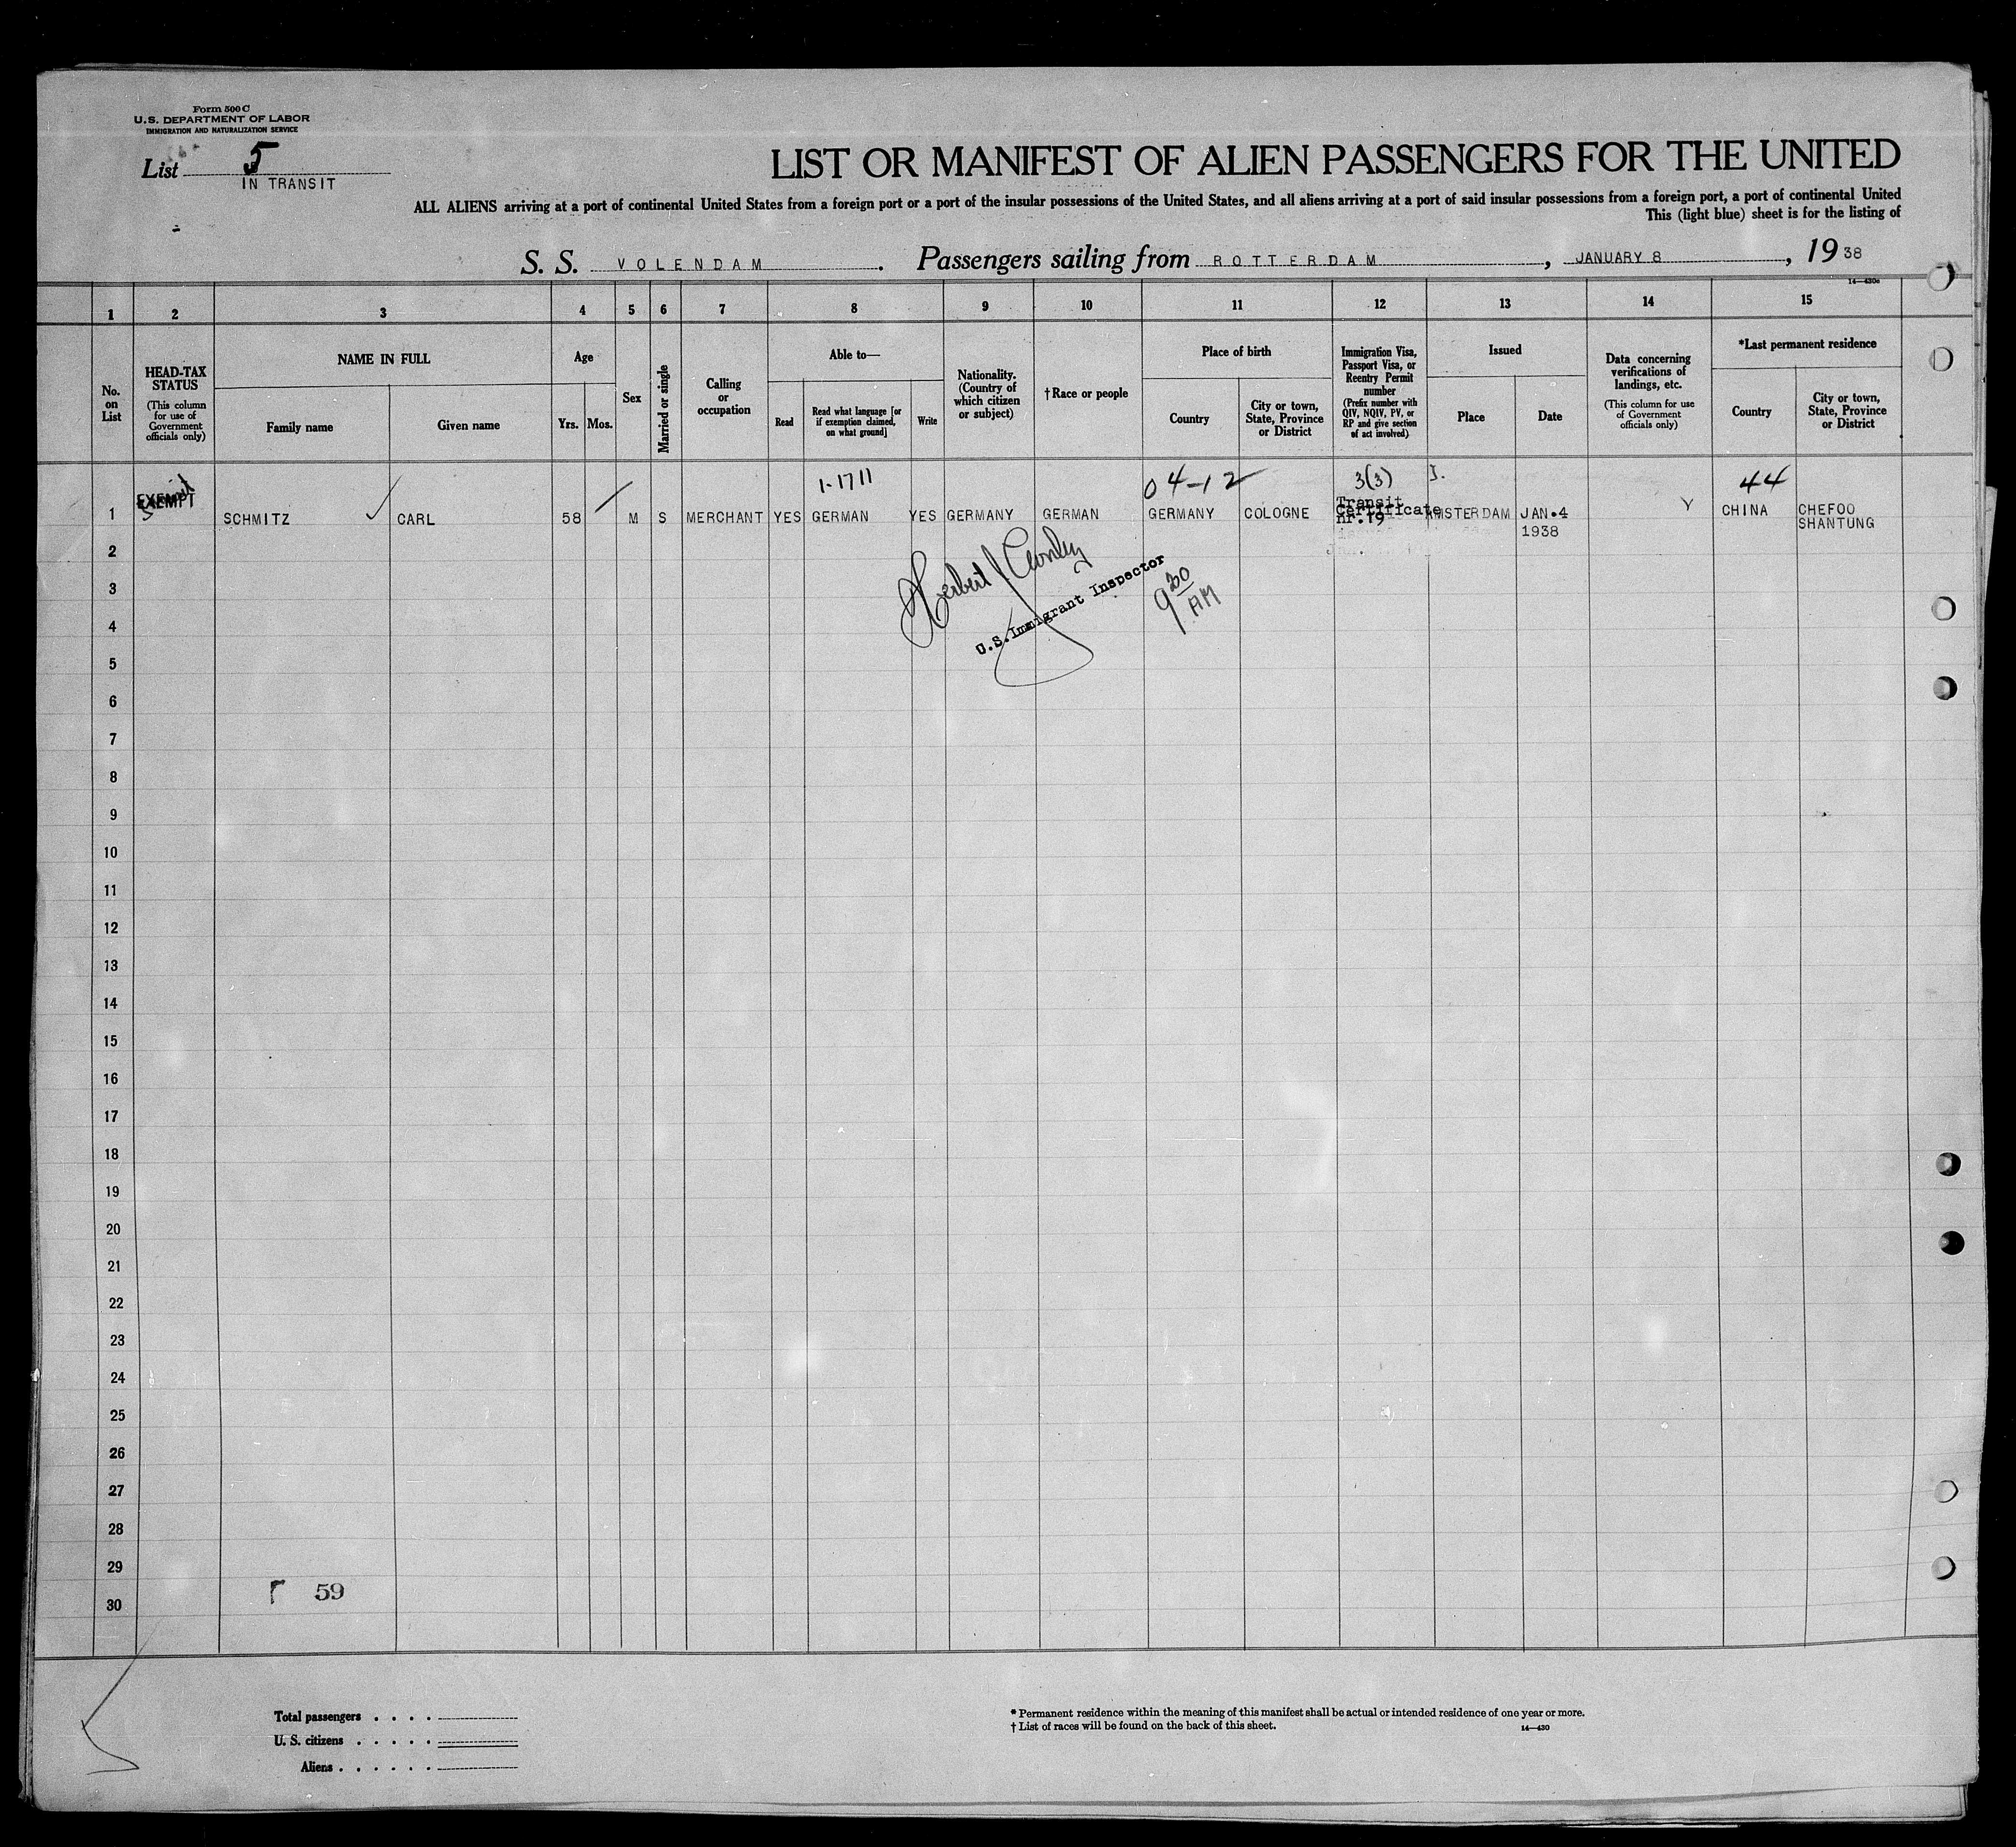 Form 500 C
U. S. DEPARTMENT OF LABOR
IMMIGRATION AND NATURALIZATION SERVICE
List 5
IN TRANSIT
LIST OR MANIFEST OF ALIEN PASSENGERS FOR THE UNITED
ALL ALIENS arriving at a port of continental United States from a foreign port or a port of the insular possessions of the United States, and all aliens arriving at a port of said insular possessions from a foreign port, a port of continental United
This (light blue) sheet is for the listing of
S. S. VOLENDAM. Passengers sailing from ROTTERDAM, JANUARY 8, 1938
14—430e
1 2 3 4 5 6 7 8 9 10 11 12 13 14 15
No. on List
HEAD-TAX STATUS
(This column for use of Government officials only)
NAME IN FULL
Family name
Given name
Age
Yrs. Mos.
Sex
Married or single
Calling or occupation
Able to—
Read
Read what language [or if exemption claimed, on what ground]
Write
Nationality. (Country of which citizen or subject)
† Race or people
Place of birth
Country
City or town, State, Province or District
Immigration Visa, Passport Visa, or Reentry Permit number
(Prefix number with QIV, NQIV, PV, or RP and give section of act involved)
Issued
Place
Date
Data concerning verifications of landings, etc.
(This column for use of Government officials only)
*Last permanent residence
Country
City or town, State, Province or District
1-1711 04-12 3(3) I. 44
EXEMPT
Transit
Certificate
nr.19
1 SCHMITZ CARL 58 M S MERCHANT YES GERMAN YES GERMANY GERMAN GERMANY COLOGNE AMSTERDAM JAN.4 Y CHINA CHEFOO
1938 SHANTUNG
2
3
4
5
6
7
8
9
10
11
12
13
14
15
16
17
18
19
20
21
22
23
24
25
26
27
28
29
30
Herbert
U.S.Immigrant Inspector
9 30 AM
59
Total passengers . . . .
U. S. citizens . . . . .
Aliens . . . . . .
* Permanent residence within the meaning of this manifest shall be actual or intended residence of one year or more.
† List of races will be found on the back of this sheet.
14—430